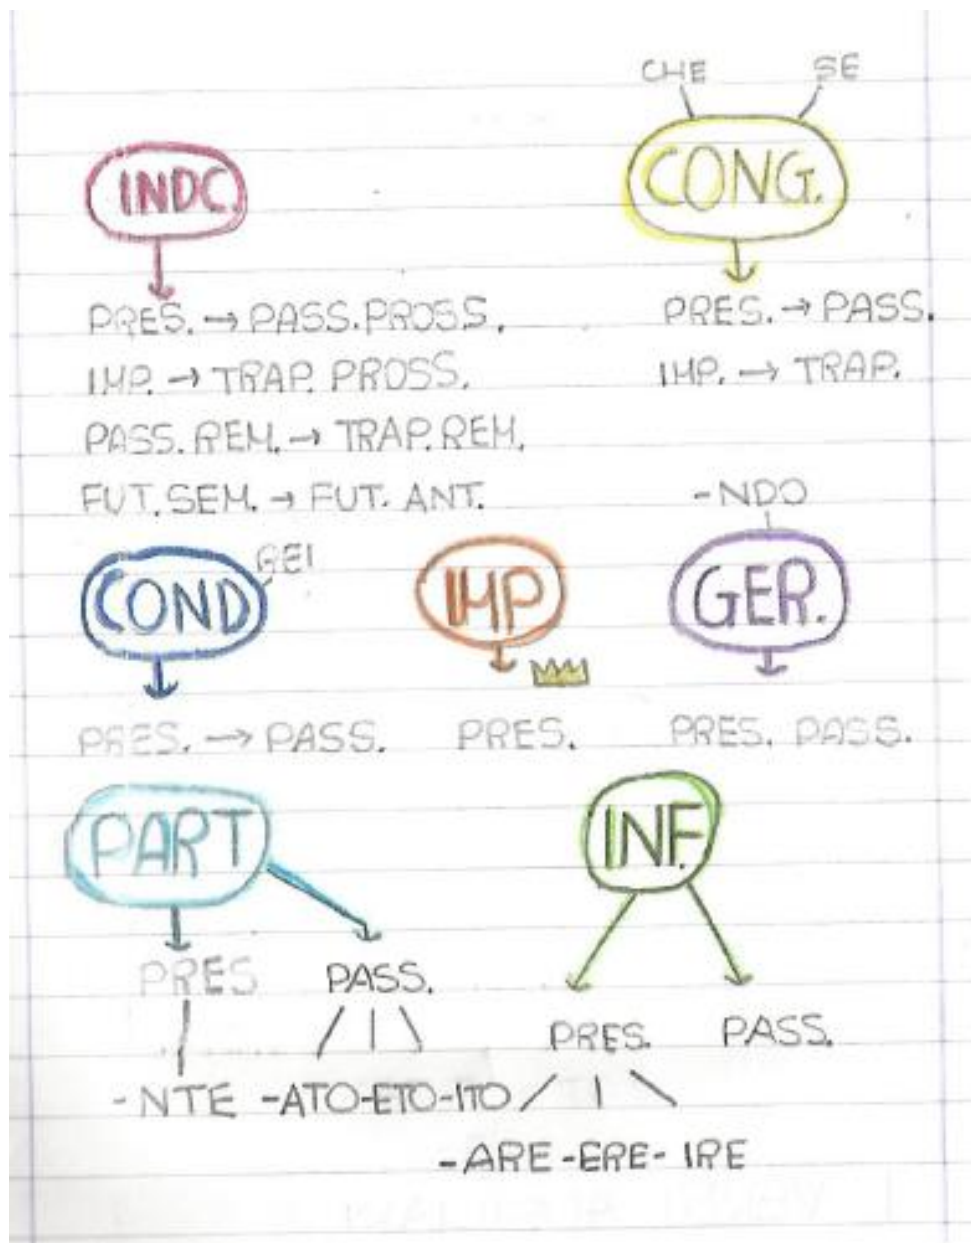 CHE SE
INDC.
CONG.
PRES. → PASS. PROSS.
IMP. → TRAP. PROSS.
PASS. REM. → TRAP. REM.
FUT. SEM. → FUT. ANT.
PRES. → PASS.
IMP. → TRAP.
COND
IMP
-NDO
GER.
PRES. → PASS.
PRES.
PRES. PASS.
PART
PRES
PASS.
-NTE
-ATO-ETO-ITO
INF.
PRES.
PASS.
-ARE -ERE- IRE